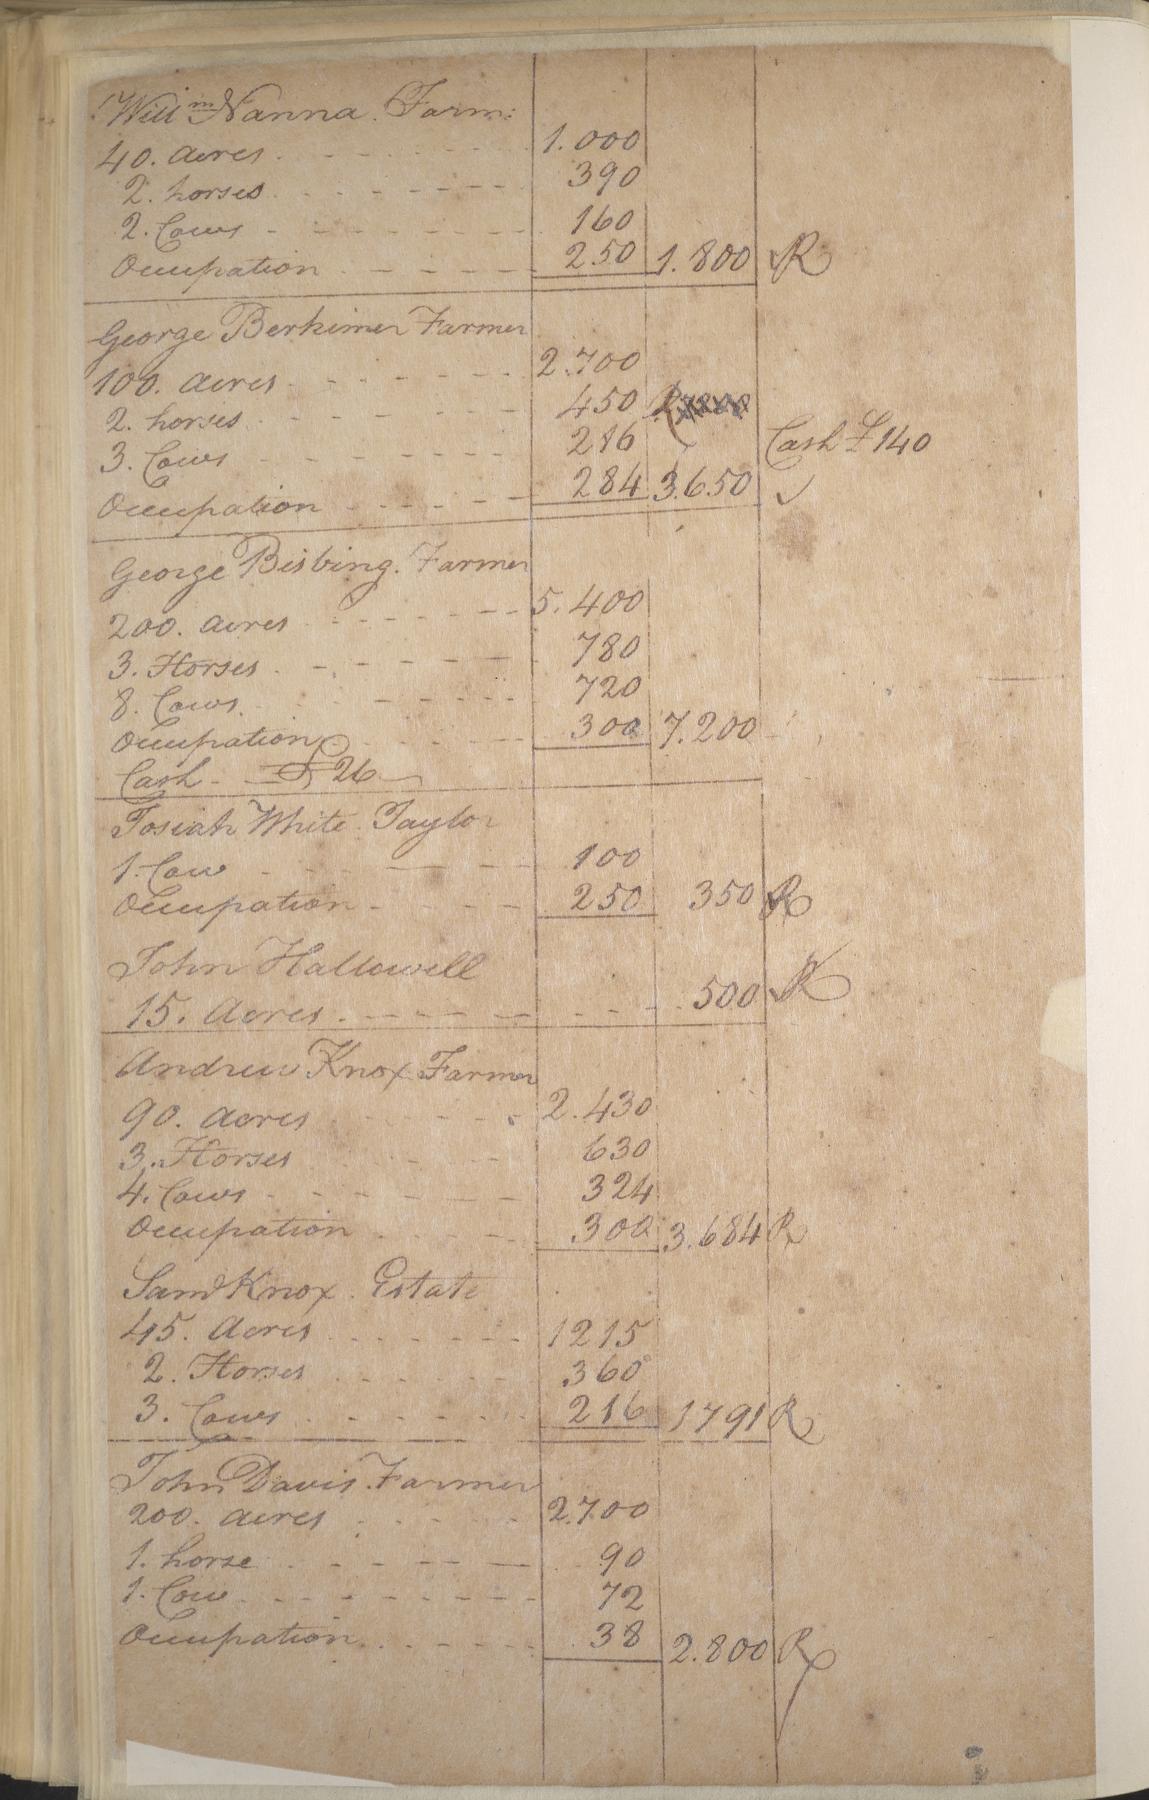 Will.m Nanna. Farm:
40. acres 1.000
2. horses 390
2. Cows 160
Occupation 250 1.800 R
George Berkimer Farmer
100. acres 2.700
2. horses 450
3. Cows 216 Cash £140
Occupation 284 3.650 ✓
George Bisbing. Farmer
200. acres 5.400
3. Horses 780
8. Cows 720
Occupation 300 7.200
Cash £26
Josiah White. Taylor
1. Cow 100
Occupation 250 350 R
John Hallowell
15. Acres 500 R
Andrew Knox Farmer
90. acres 2.430
3. Horses 630
4. Cows 324
Occupation 300 3.684 R
Saml Knox. Estate
45. Acres 1215
2. Horses 360
3. Cows 216 1791 R
John Davis. Farmer
200. acres 2.700
1. horse 90
1. Cow 72
Occupation 38 2.800 R